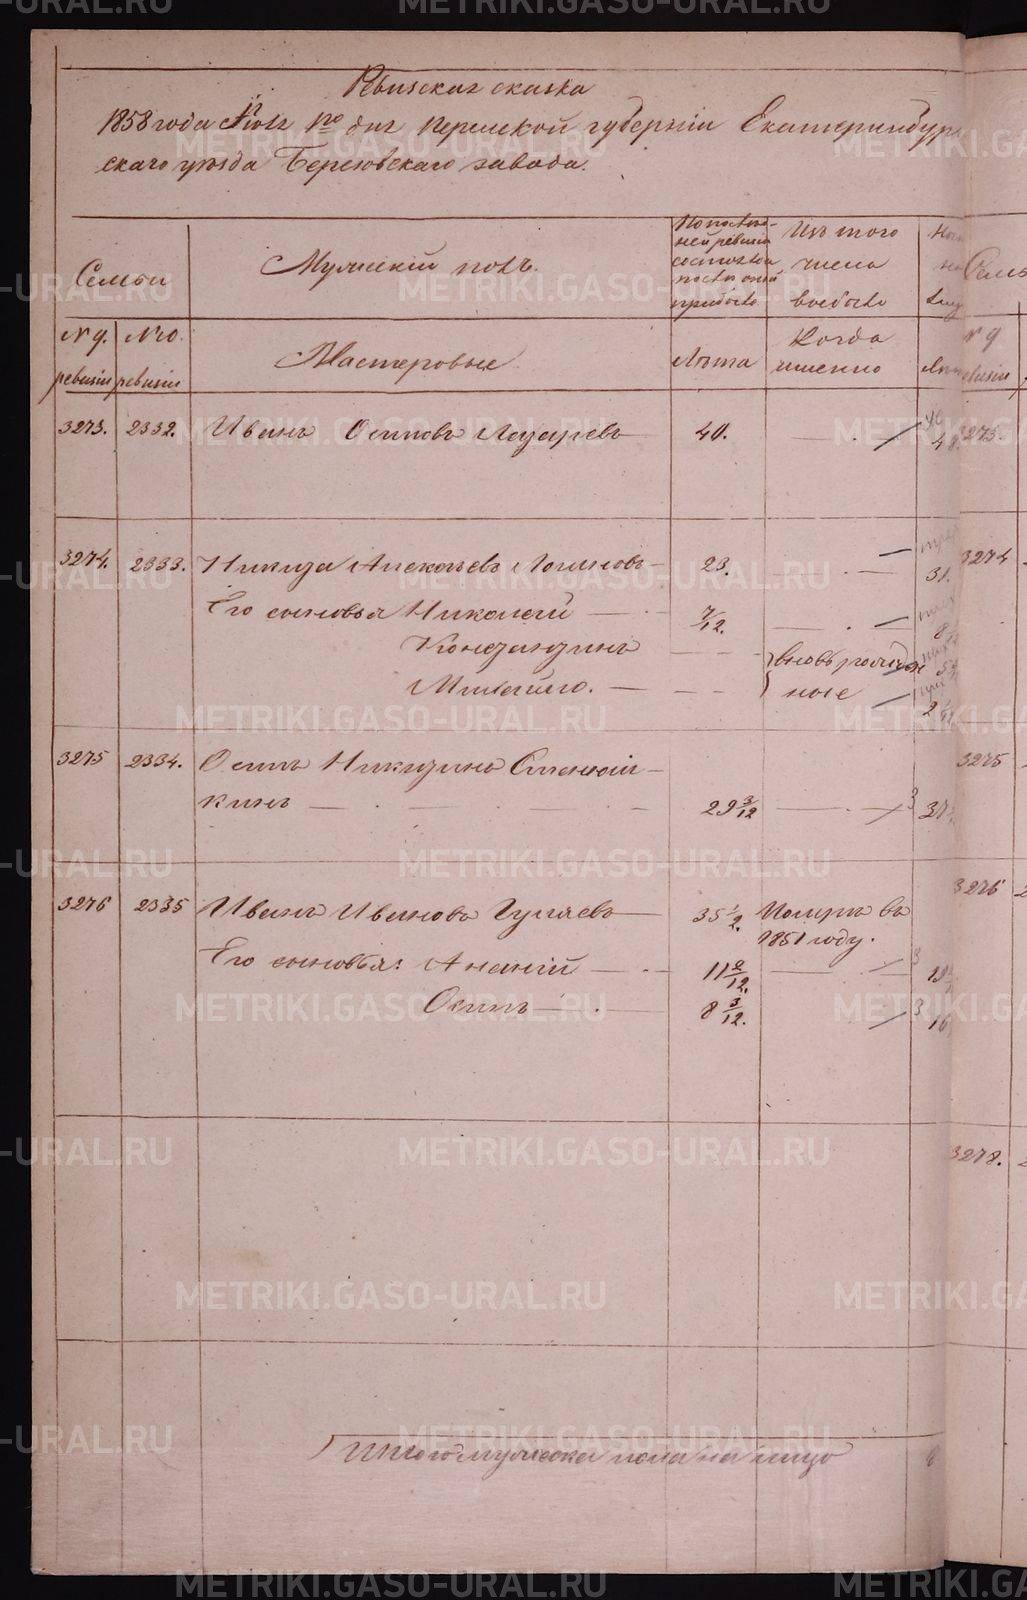 Ревизская сказка
1858 года Іюля 12 дня Пермской губерніи Екатеринбург
скаго уѣзда Березовскаго завода.
Семьи
Мужескій полъ.
По послѣд-
ней ревизіи
состояло и
послѣ оной
прибыло
Изъ того
числа
выбыло
№ 9. ревизіи
№ 10. ревизіи
Мастеровые
Лѣта
Когда
именно
3273. 2332. Иванъ Осиповъ Лазаревъ 40. 48
3274. 2333. Никита Алексѣевъ Логиновъ 23. 31.
Его сыновья Николай 7/12. 8
Константинъ вновь рожден
Михайло. ные 2
3275 2334. Осипъ Никитинъ
кинъ 29 3/12 37
3276 2335 Иванъ Ивановъ Гуляевъ 35 1/2. Померъ въ
1851 году.
Его сыновья: Ананій 11 2/12. 19
Осипъ 8 3/12. 16
Итого мужеска пола на лицо
Семь
№ 9
ревизіи
3273.
3274
3275
3276
3278.
METRIKI.GASO-URAL.RU